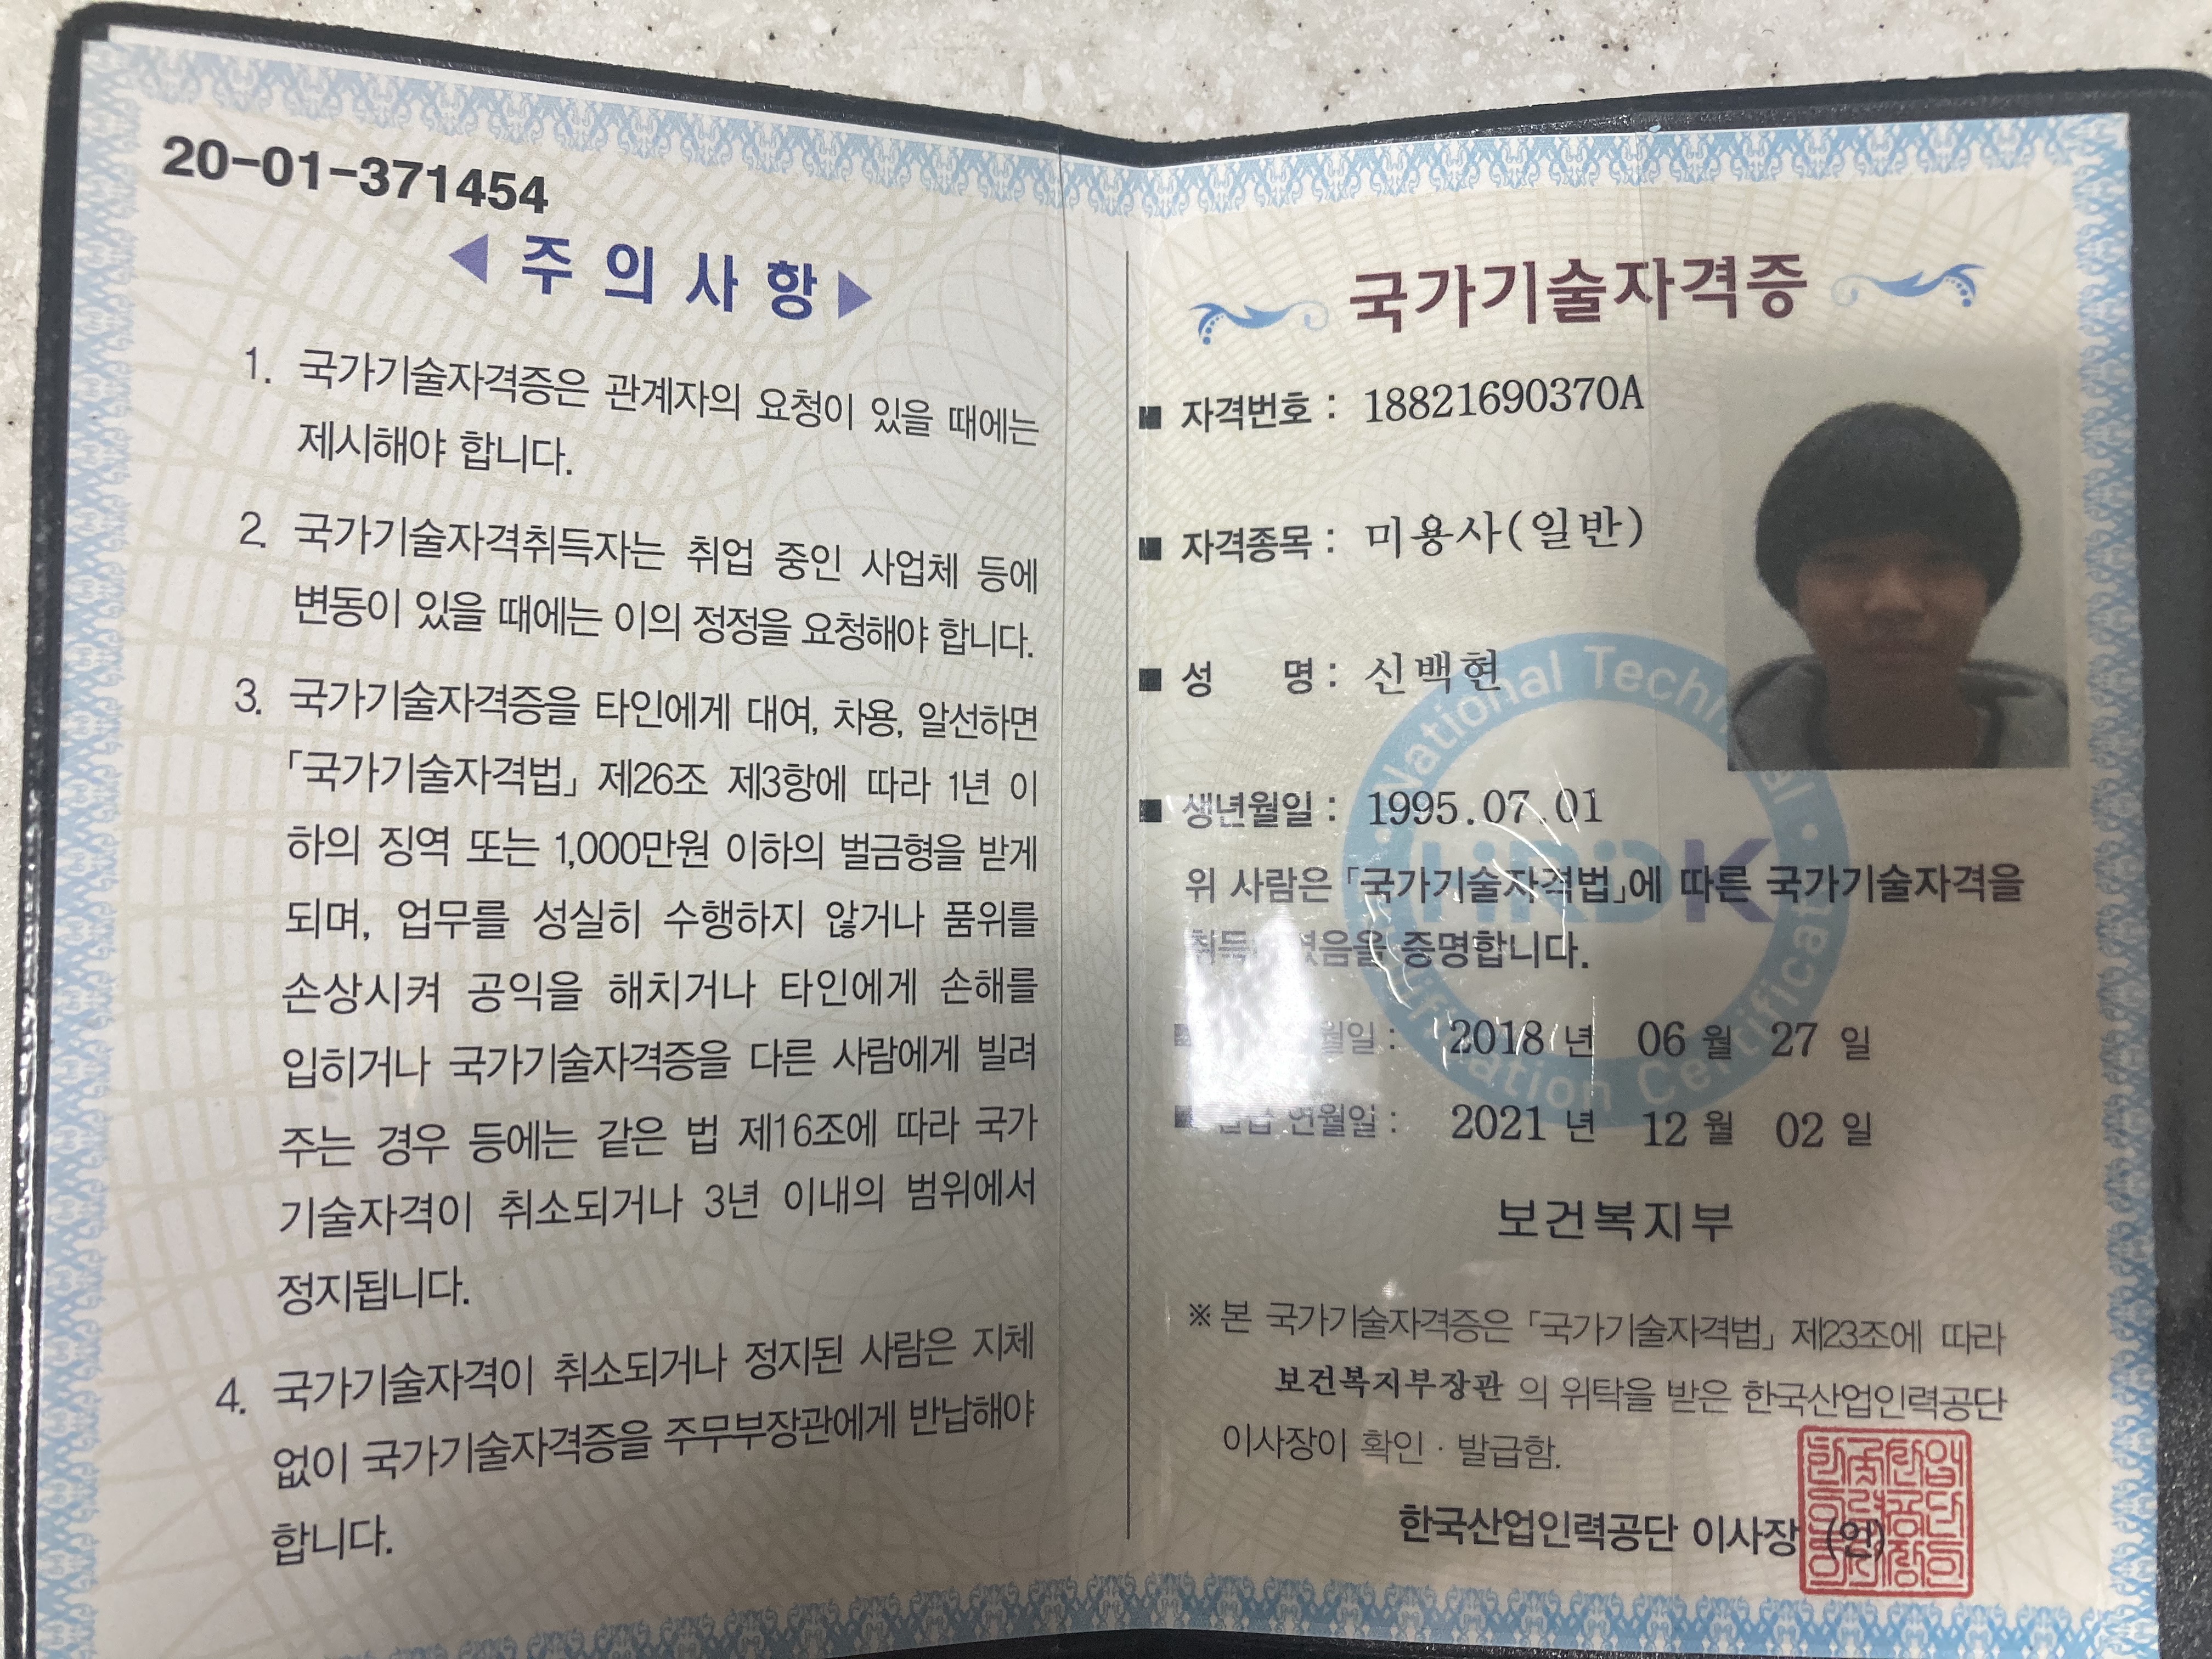 20-01-371454
◀ 주 의 사 항 ▶
1. 국가기술자격증은 관계자의 요청이 있을 때에는
제시해야 합니다.
2. 국가기술자격취득자는 취업 중인 사업체 등에
변동이 있을 때에는 이의 정정을 요청해야 합니다.
3. 국가기술자격증을 타인에게 대여, 차용, 알선하면
「국가기술자격법」 제26조 제3항에 따라 1년 이
하의 징역 또는 1,000만원 이하의 벌금형을 받게
되며, 업무를 성실히 수행하지 않거나 품위를
손상시켜 공익을 해치거나 타인에게 손해를
입히거나 국가기술자격증을 다른 사람에게 빌려
주는 경우 등에는 같은 법 제16조에 따라 국가
기술자격이 취소되거나 3년 이내의 범위에서
정지됩니다.
4. 국가기술자격이 취소되거나 정지된 사람은 지체
없이 국가기술자격증을 주무부장관에게 반납해야
합니다.
국가기술자격증
■ 자격번호 : 18821690370A
■ 자격종목 : 미용사(일반)
■ 성 명 : 신백현
■ 생년월일 : 1995.07.01
위 사람은 「국가기술자격법」에 따른 국가기술자격을
증명합니다.
2018 년 06 월 27 일
연월일 : 2021 년 12 월 02 일
보건복지부
※ 본 국가기술자격증은 「국가기술자격법」 제23조에 따라
보건복지부장관 의 위탁을 받은 한국산업인력공단
이사장이 확인 · 발급함.
한국산업인력공단 이사장 (인)
National Technical
HRDK
Certificate